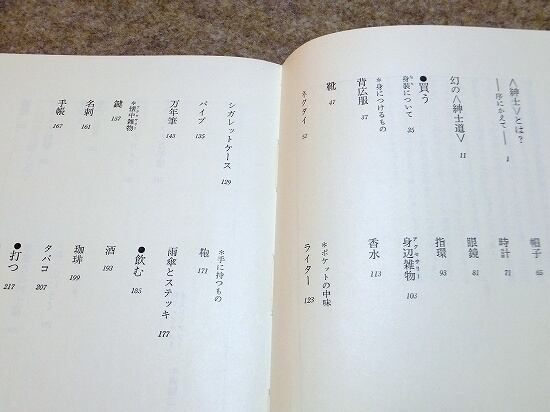 〈紳士〉とは?
——序にかえて—— 1
幻の〈紳士道〉 11
●買う
身装について 25
*身につけるもの
背広服 37
靴 47
ネクタイ 52
帽子 65
時計 71
眼鏡 81
指環 93
身辺雑物 103
アクセサリー
香水 113
*ポケットの中味
ライター 123
シガレットケース 129
パイプ 135
万年筆 143
*懐中雑物
鍵 157
名刺 161
手帳 167
*手に持つもの
鞄 171
雨傘とステッキ 177
●飲む 185
酒 193
珈琲 199
タバコ 207
●打つ 217